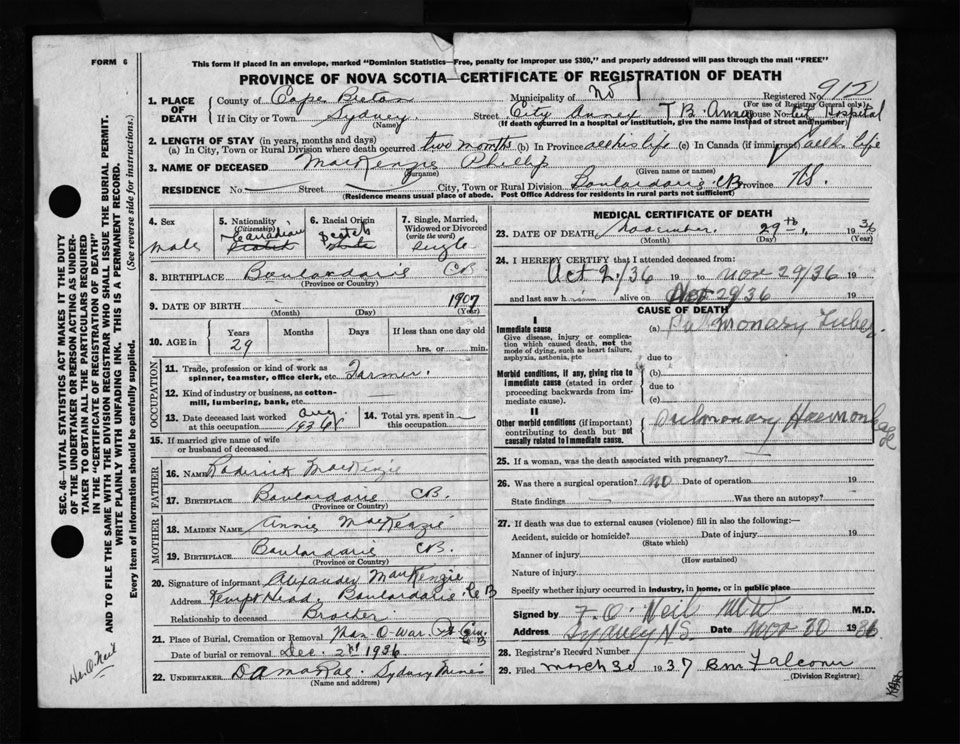 FORM 6
This form if placed in an envelope, marked "Dominion Statistics—Free, penalty for improper use $300," and properly addressed will pass through the mail "FREE"
PROVINCE OF NOVA SCOTIA—CERTIFICATE OF REGISTRATION OF DEATH
Registered No. 915
(For use of Registrar General only)
1. PLACE OF DEATH
County of Cape Breton Municipality of No 1
If in City or Town Sydney Street City Sanex T B. Annex House No. City Hospital
(Name) (If death occurred in a hospital or institution, give the name instead of street and number)
2. LENGTH OF STAY (in years, months and days)
(a) In City, Town or Rural Division where death occurred two months (b) In Province all his life (c) In Canada (if immigrant) all his life
3. NAME OF DECEASED MacKenzie Phillip
(Surname) (Given name or names)
RESIDENCE No. Street City, Town or Rural Division Boulardarie CB Province N.S.
(Residence means usual place of abode. Post Office Address for residents in rural parts not sufficient)
4. Sex
male
5. Nationality (Citizenship)
Canadian
6. Racial Origin
Scotch
7. Single, Married, Widowed or Divorced (write the word)
Single
8. BIRTHPLACE Boulardarie CB
(Province or Country)
9. DATE OF BIRTH 1907
(Month) (Day) (Year)
10. AGE in
Years Months Days If less than one day old
29 hrs. or min.
OCCUPATION
11. Trade, profession or kind of work as spinner, teamster, office clerk, etc. Farmer.
12. Kind of industry or business, as cotton-mill, lumbering, bank, etc.
13. Date deceased last worked at this occupation Aug. 1936
14. Total yrs. spent in this occupation
15. If married give name of wife or husband of deceased
FATHER
16. NAME Roderick MacKenzie
17. BIRTHPLACE Boulardarie CB.
(Province or Country)
MOTHER
18. MAIDEN NAME Annie MacKenzie
19. BIRTHPLACE Boulardarie CB.
(Province or Country)
20. Signature of informant Alexander MacKenzie
Address Kempt Head, Boulardarie, C B
Relationship to deceased Brother
21. Place of Burial, Cremation or Removal Man O-War Pt. Cem. C B
Date of burial or removal Dec. 2nd 1936
22. UNDERTAKER Sydney Mines
(Name and address)
MEDICAL CERTIFICATE OF DEATH
23. DATE OF DEATH November 29th 1936
(Month) (Day) (Year)
24. I HEREBY CERTIFY that I attended deceased from:
Oct 2/36 19 to Nov 29/36 19
and last saw h im alive on Nov 29/36 19
CAUSE OF DEATH
I
Immediate cause
Give disease, injury or complication which caused death, not the mode of dying, such as heart failure, asphyxia, asthenia, etc
(a) Pulmonary Tuber.
due to
Morbid conditions, if any, giving rise to immediate cause (stated in order proceeding backwards from immediate cause).
(b)
due to
(c)
II
Other morbid conditions (if important) contributing to death but not causally related to immediate cause.
Pulmonary Haemorrhage
25. If a woman, was the death associated with pregnancy?
26. Was there a surgical operation? no Date of operation 19
State findings Was there an autopsy?
27. If death was due to external causes (violence) fill in also the following:—
Accident, suicide or homicide? Date of injury 19
(State which)
Manner of injury
(How sustained)
Nature of injury
Specify whether injury occurred in industry, in home, or in public place
Signed by F. O'Neil M.D.
Address Sydney N S Date Nov 30 1936
28. Registrar's Record Number
29. Filed March 30 1937 Falconer
(Division Registrar)
SEC. 46—VITAL STATISTICS ACT MAKES IT THE DUTY OF THE UNDERTAKER OR PERSON ACTING AS UNDERTAKER TO OBTAIN ALL THE PARTICULARS REQUIRED IN THE "CERTIFICATE OF REGISTRATION OF DEATH" AND TO FILE THE SAME WITH THE DIVISION REGISTRAR WHO SHALL ISSUE THE BURIAL PERMIT.
WRITE PLAINLY WITH UNFADING INK. THIS IS A PERMANENT RECORD.
Every item of information should be carefully supplied. (See reverse side for instructions.)
O'Neil